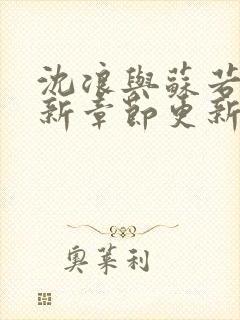 沈浪與蘇若
新章節更新
奧萊利